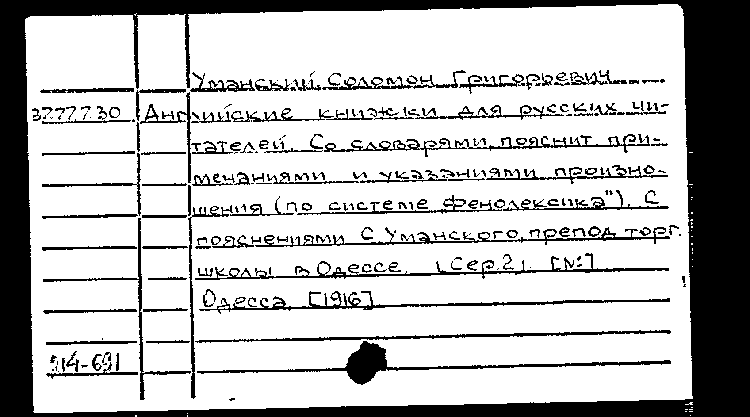 Уманский, Соломон Григорьевич
37.77.7.30 Английские книжки для русских чи-
тателей. Со словарями, пояснит. при-
мечаниями и указаниями произно-
шения (по системе фенолексика"). С
пояснениями С. Уманского, препод. торг.
школы в Одессе. (Сер.2). [№:]
Одесса, [1916]
914-691